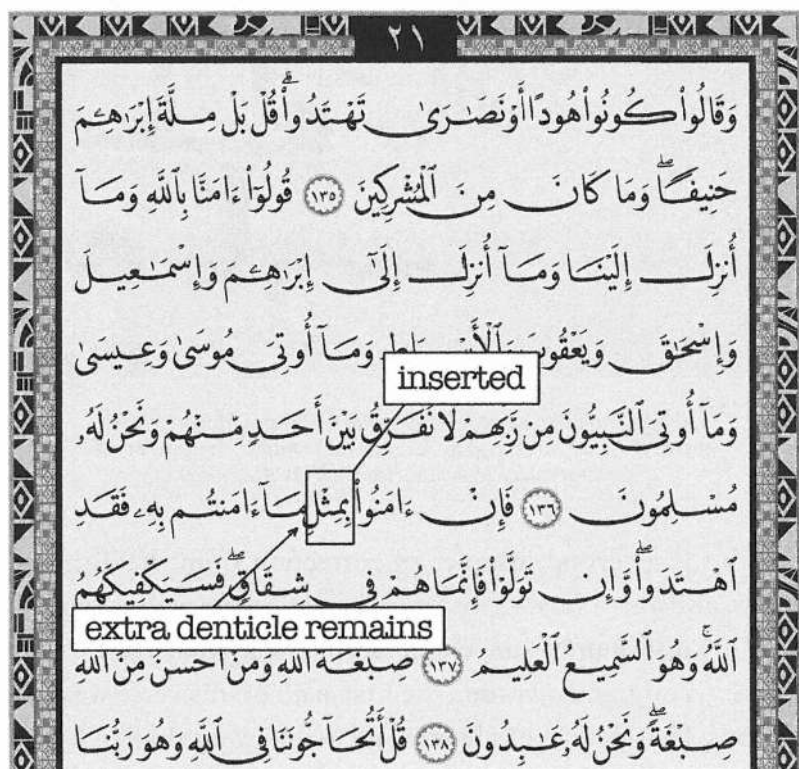 ٢١
وَقَالُوا۟ كُونُوا۟ هُودًا أَوْ نَصَـٰرَىٰ تَهْتَدُوا۟ۗ قُلْ بَلْ مِلَّةَ إِبْرَٰهِـۧمَ
حَنِيفًاۖ وَمَا كَانَ مِنَ ٱلْمُشْرِكِينَ ١٣٥ قُولُوٓا۟ ءَامَنَّا بِٱللَّهِ وَمَآ
أُنزِلَ إِلَيْنَا وَمَآ أُنزِلَ إِلَىٰٓ إِبْرَٰهِـۧمَ وَإِسْمَـٰعِيلَ
وَإِسْحَـٰقَ وَيَعْقُوبَ وَمَآ أُوتِىَ مُوسَىٰ وَعِيسَىٰ
inserted
وَمَآ أُوتِىَ ٱلنَّبِيُّونَ مِن رَّبِّهِمْ لَا نُفَرِّقُ بَيْنَ أَحَدٍ مِّنْهُمْ وَنَحْنُ لَهُۥ
مُسْلِمُونَ ١٣٦ فَإِنْ ءَامَنُوا۟ بِمِثْلِ مَآ ءَامَنتُم بِهِۦ فَقَدِ
ٱهْتَدَوا۟ۖ وَّإِن تَوَلَّوْا۟ فَإِنَّمَا هُمْ فِى شِقَاقٍۖ فَسَيَكْفِيكَهُمُ
extra denticle remains
ٱللَّهُۚ وَهُوَ ٱلسَّمِيعُ ٱلْعَلِيمُ ١٣٧ صِبْغَةَ ٱللَّهِ وَمَنْ أَحْسَنُ مِنَ ٱللَّهِ
صِبْغَةًۖ وَنَحْنُ لَهُۥ عَـٰبِدُونَ ١٣٨ قُلْ أَتُحَآجُّونَنَا فِى ٱللَّهِ وَهُوَ رَبُّنَا